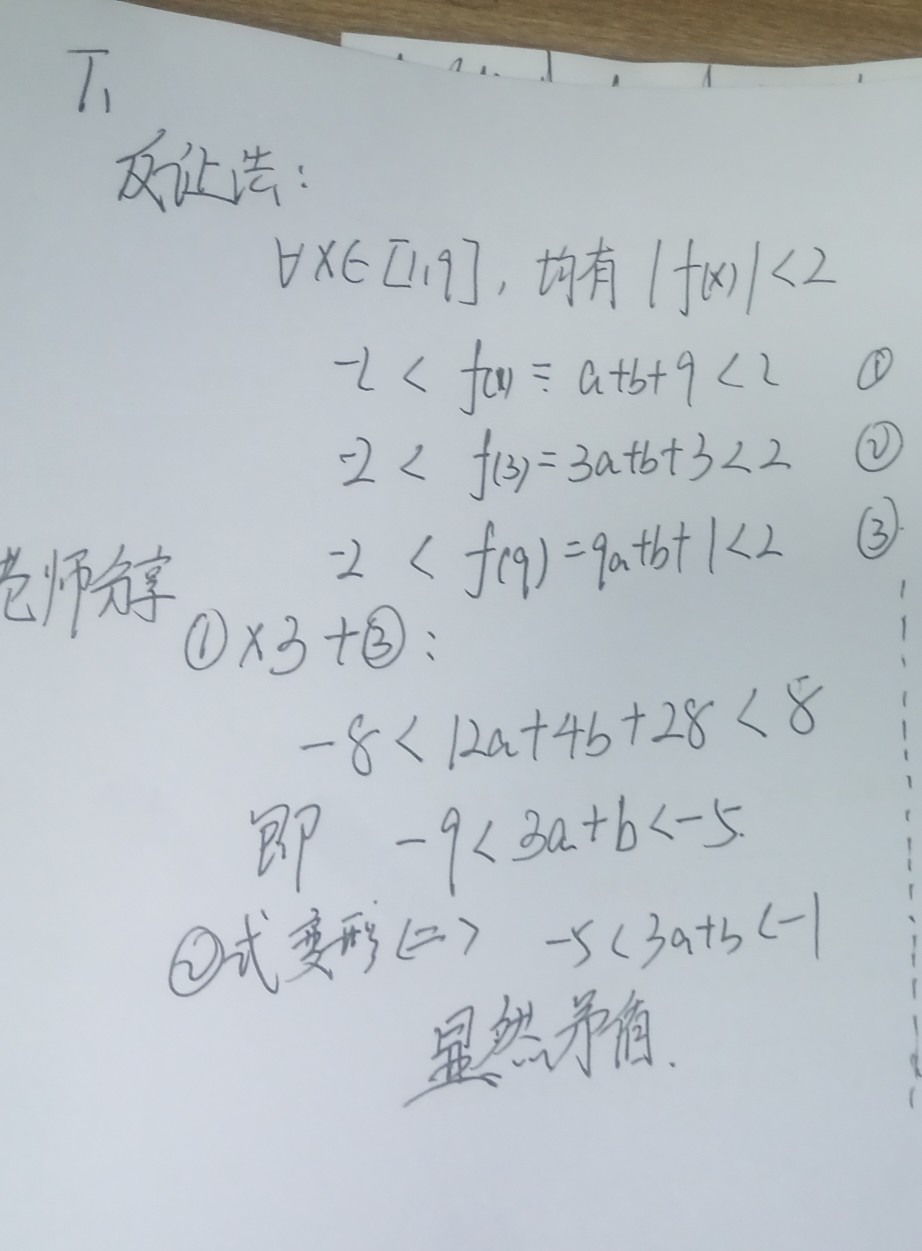 T₁
反证法:
∀x∈[1,9], 均有 |f(x)|<2
-2 < f(1) = a+b+9<2 ①
-2 < f(3)=3a+b+3<2 ②
-2 < f(9)=9a+b+1<2 ③
老师分享
①×3+③:
-8<12a+4b+28<8
即 -9<3a+b<-5.
②式变形<=> -5<3a+b<-1
显然矛盾.